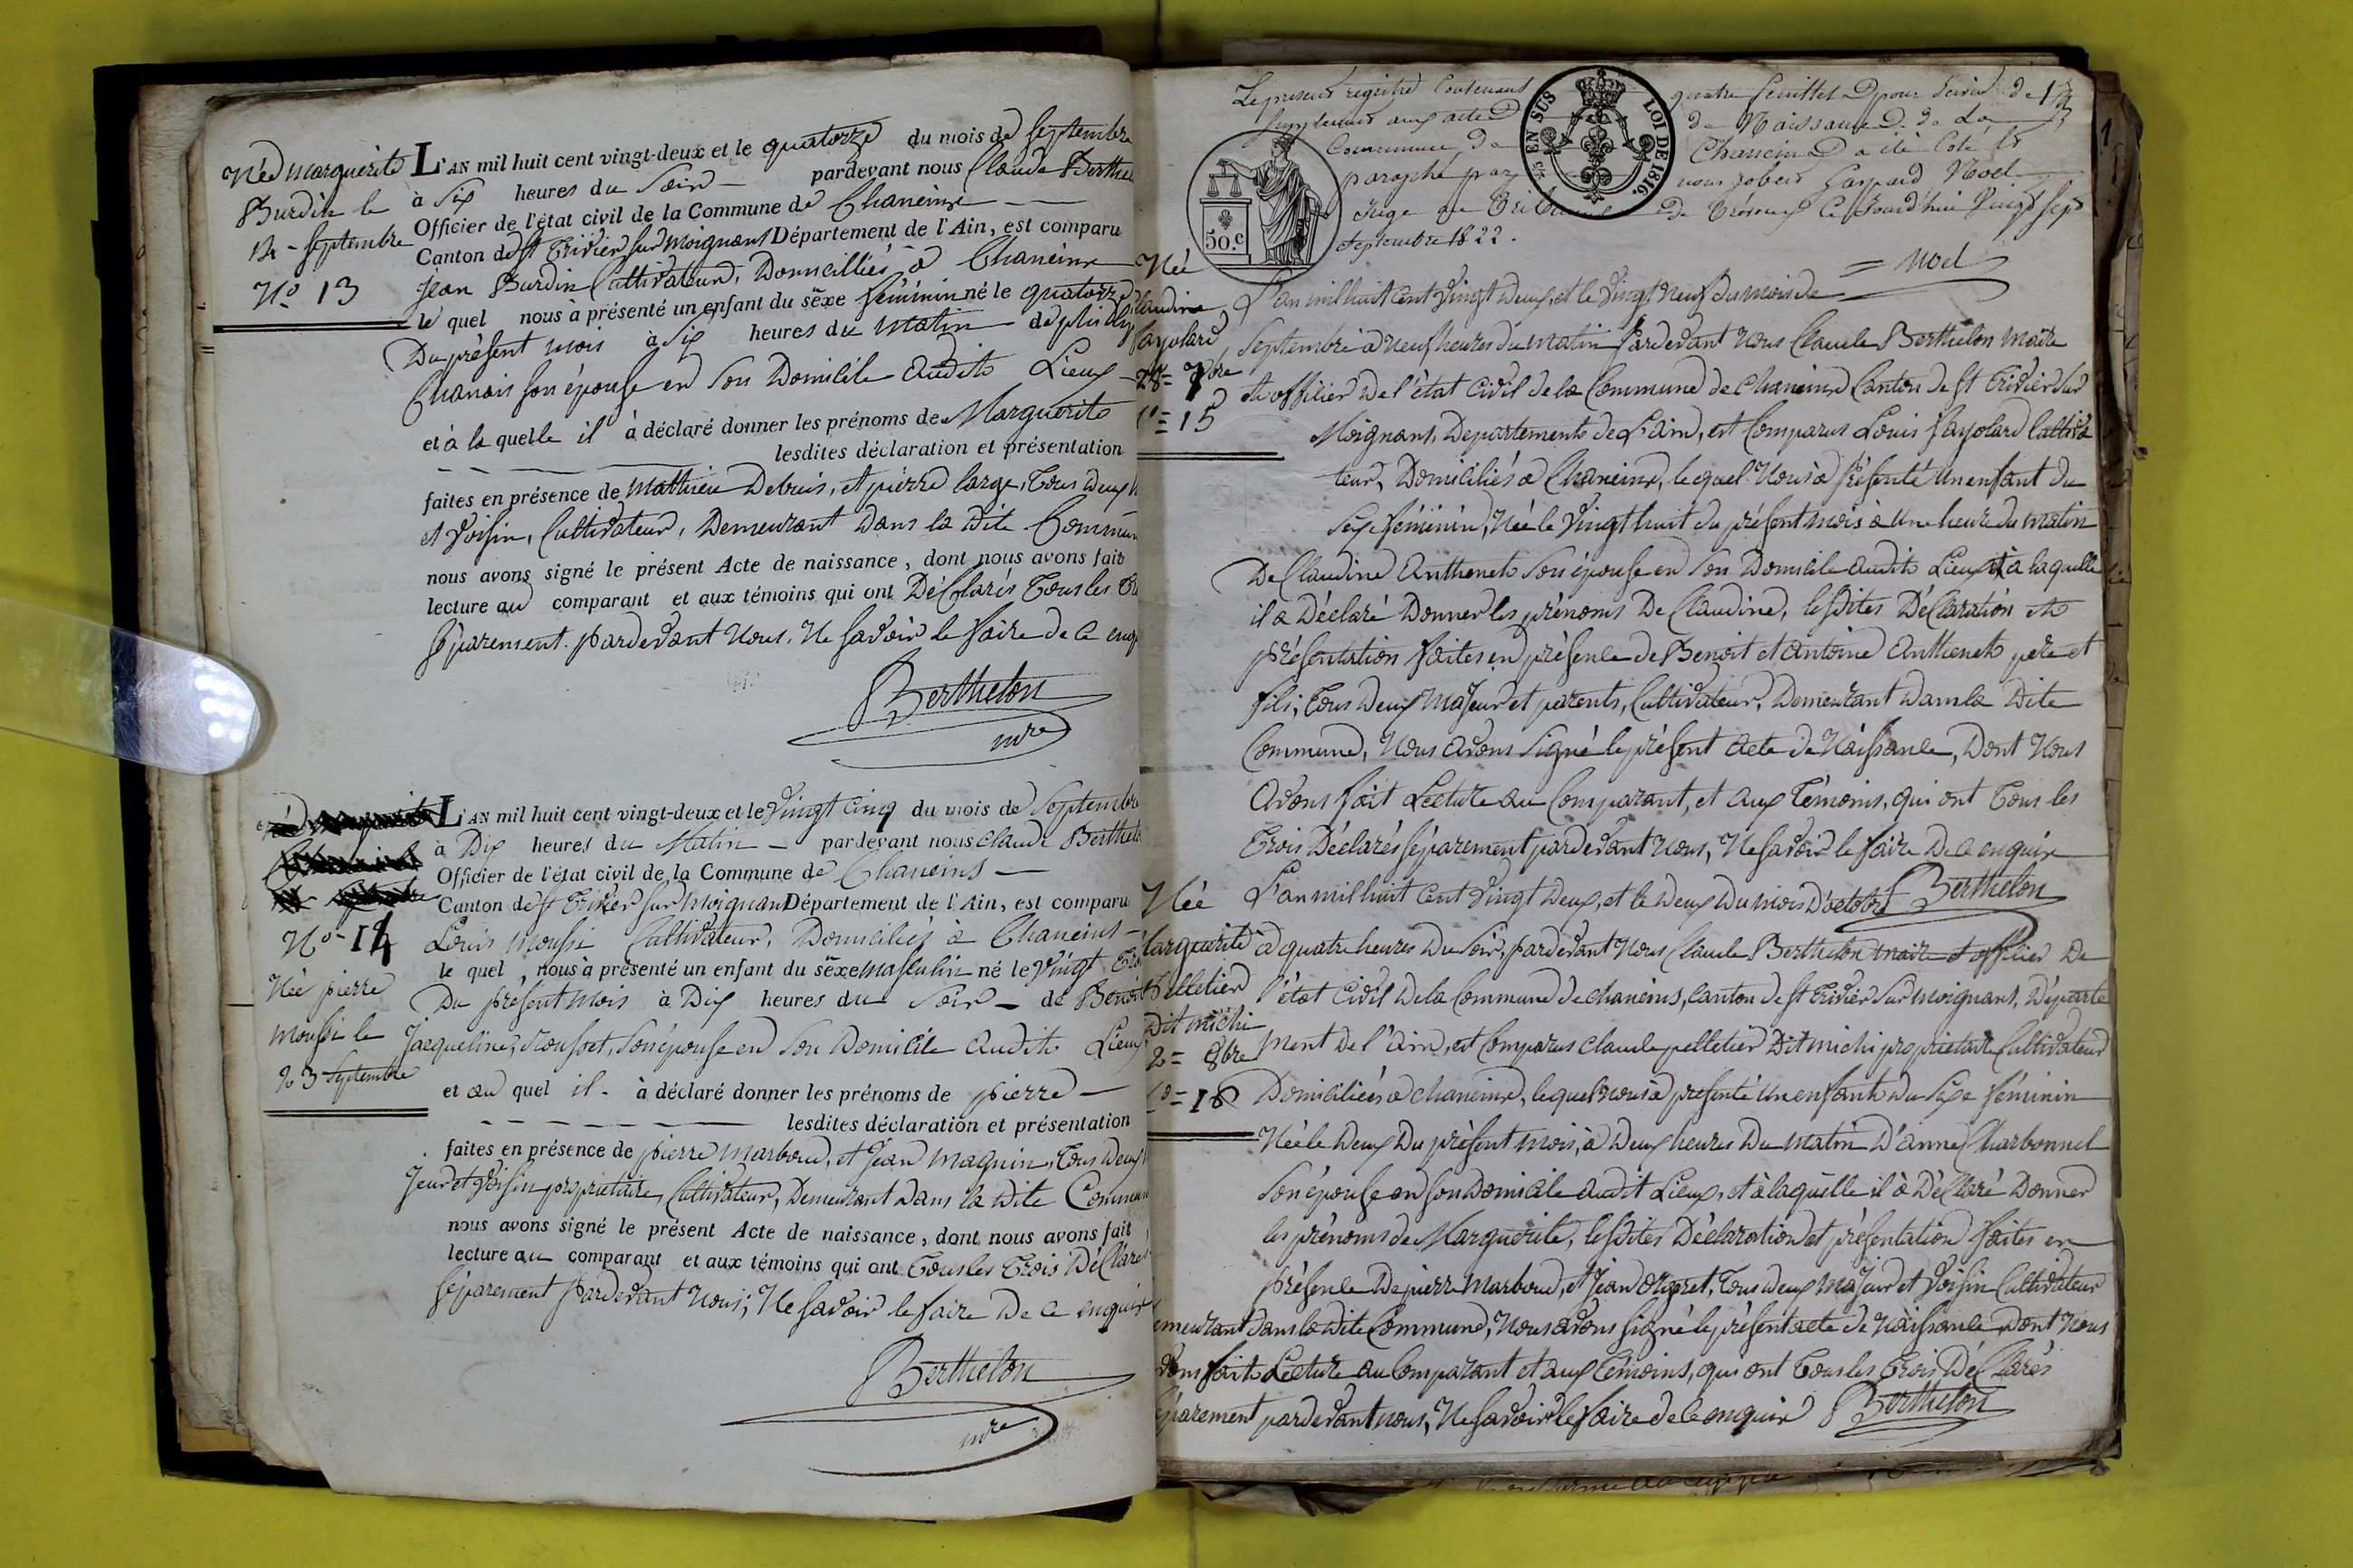 Née Marguerite
Burdin le
14 - Septembre
No 13
L'AN mil huit cent vingt-deux et le quatorze du mois de Septembre
à Six heures du Soir - pardevant nous Claude Berthel
Officier de l'état civil de la Commune de Chaneins
Canton de St Trivier sur moignans Département de l'Ain, est comparu
jean Burdin Cultivateur, Domicilliés à Chaneins
le quel nous à présenté un enfant du sèxe féminin né le quatorze
Du présent mois à Six heures du matin de
Chanais son épouse en son Domicile audit Lieux
et à la quelle il à déclaré donner les prénoms de Marguerite
lesdites déclaration et présentation
faites en présence de Mathieu Debuis, et pierre large, Tous deux
et Voisin, Cultivateur, Demeurant dans la dite Commun
nous avons signé le présent Acte de naissance, dont nous avons fait
lecture au comparant et aux témoins qui ont Déclarés Tous les
séparement pardevant Nous, Ne Savoir le faire de ce enq
Berthelon
mre
No 14
Née pierre
moussi le
23 Septembre
L'AN mil huit cent vingt-deux et le Vingt Cinq du mois de Septembre
à Dix heures du Matin - pardevant nous Claude Berthelo
Officier de l'état civil de la Commune de Chaneins
Canton de St Trivier sur moignans Département de l'Ain, est comparu
Louis moussi Cultivateur, Domiciliés à Chaneins
le quel, nous à présenté un enfant du sèxe masculin né le Vingt
Du présent mois à Dix heures du Soir - de Benoit
Jacqueline, Rousset, son épouse en son Domicile audit Lieux
et au quel il - à déclaré donner les prénoms de pierre
lesdites déclaration et présentation
faites en présence de pierre Marboud, et Jean Maguin, Tous deux
jeur et Voisin proprietaire, Cultivateur, Demeurant dans la dite Commun
nous avons signé le présent Acte de naissance, dont nous avons fait
lecture au comparant et aux témoins qui ont Tous les Trois Déclarés
séparement pardevant Nous; Ne Savoir le faire de ce enquir
Berthelon
mre
Le present registre Contenant quatre feuillets pour Servir de
Supplement aux actes de Naissance de La
Commune de Chaneins a été Coté et
paraphé par nous Gaspard Noel
Juge au Tribunal de Trevoux Ce Jourdhui Vingt Sept
Septembre 1822.
Noel
50.c
EN SUS
LOI DE 1816.
Née
laudine
fayolard
28 = 7bre
o = 15
L'an mil huit cent Vingt Deux, et le Vingt Neuf du mois de
Septembre à Neuf heures du matin pardevant Nous Claude Berthelon Maire
et officier de l'état Civil de la Commune de Chaneins Canton de St Trivier Sur
Moignans, Departement de L'ain, est Comparus Louis fayolard Cultiva
teur, Domiciliés à Chaneins, lequel Nous à présenté un enfant du
Sexe féminin, Née le Vingt huit du présent mois à Une heure du matin
De Claudine Anthenet son épouse en Son Domicile audit Lieux et à laquelle
il à Déclaré Donner les prénoms De Claudine, lesdites Déclaration et
présentation faites en présence de Benoit et Antoine Anthenet père et
fils, Tous deux Majeur et parents, Cultivateur, Demeurant dans la Dite
Commune, Nous avons Signé le présent Acte de Naissance, Dont Nous
Avons fait Lecture au Comparant, et aux Témoins, qui ont Tous les
Trois Déclarés séparement pardevant Nous, Ne Savoir le faire De ce enquir
Berthelon
Née
arguerite
Pelletier
Dit michi
2 = 8bre
o = 16
L'an mil huit Cent Vingt Deux, et le Deux Du mois D'octobre
à quatre heures Du Soir, pardevant Nous Claude Berthelon maire et officier De
l'état Civil De la Commune de Chaneins, Canton de St Trivier Sur moignans, Départe
ment De l'ain, est Comparus Claude pelletier Dit michi proprietaire Cultivateur
Domiciliés à Chaneins, lequel nous à présenté un enfant du Sexe féminin
Née le Deux Du présent mois, à Deux heures Du matin D'anne Charbonnel
Son épouse en son Domicile audit Lieux, et à laquelle il à Déclaré Donner
les prénoms de Marguerite, lesdites Déclaration et présentation faites en
présence De pierre Marboud, et Jean Orgeret, Tous deux Majeur et Voisin Cultivateur
emeurant dans la dite Commune, Nous avons Signé le présent acte de Naissance Dont Nous
vons fait Lecture au Comparant et aux Témoins, qui ont Tous les Trois Déclarés
éparement pardevant nous, Ne Savoir le faire de ce enquir Berthelon